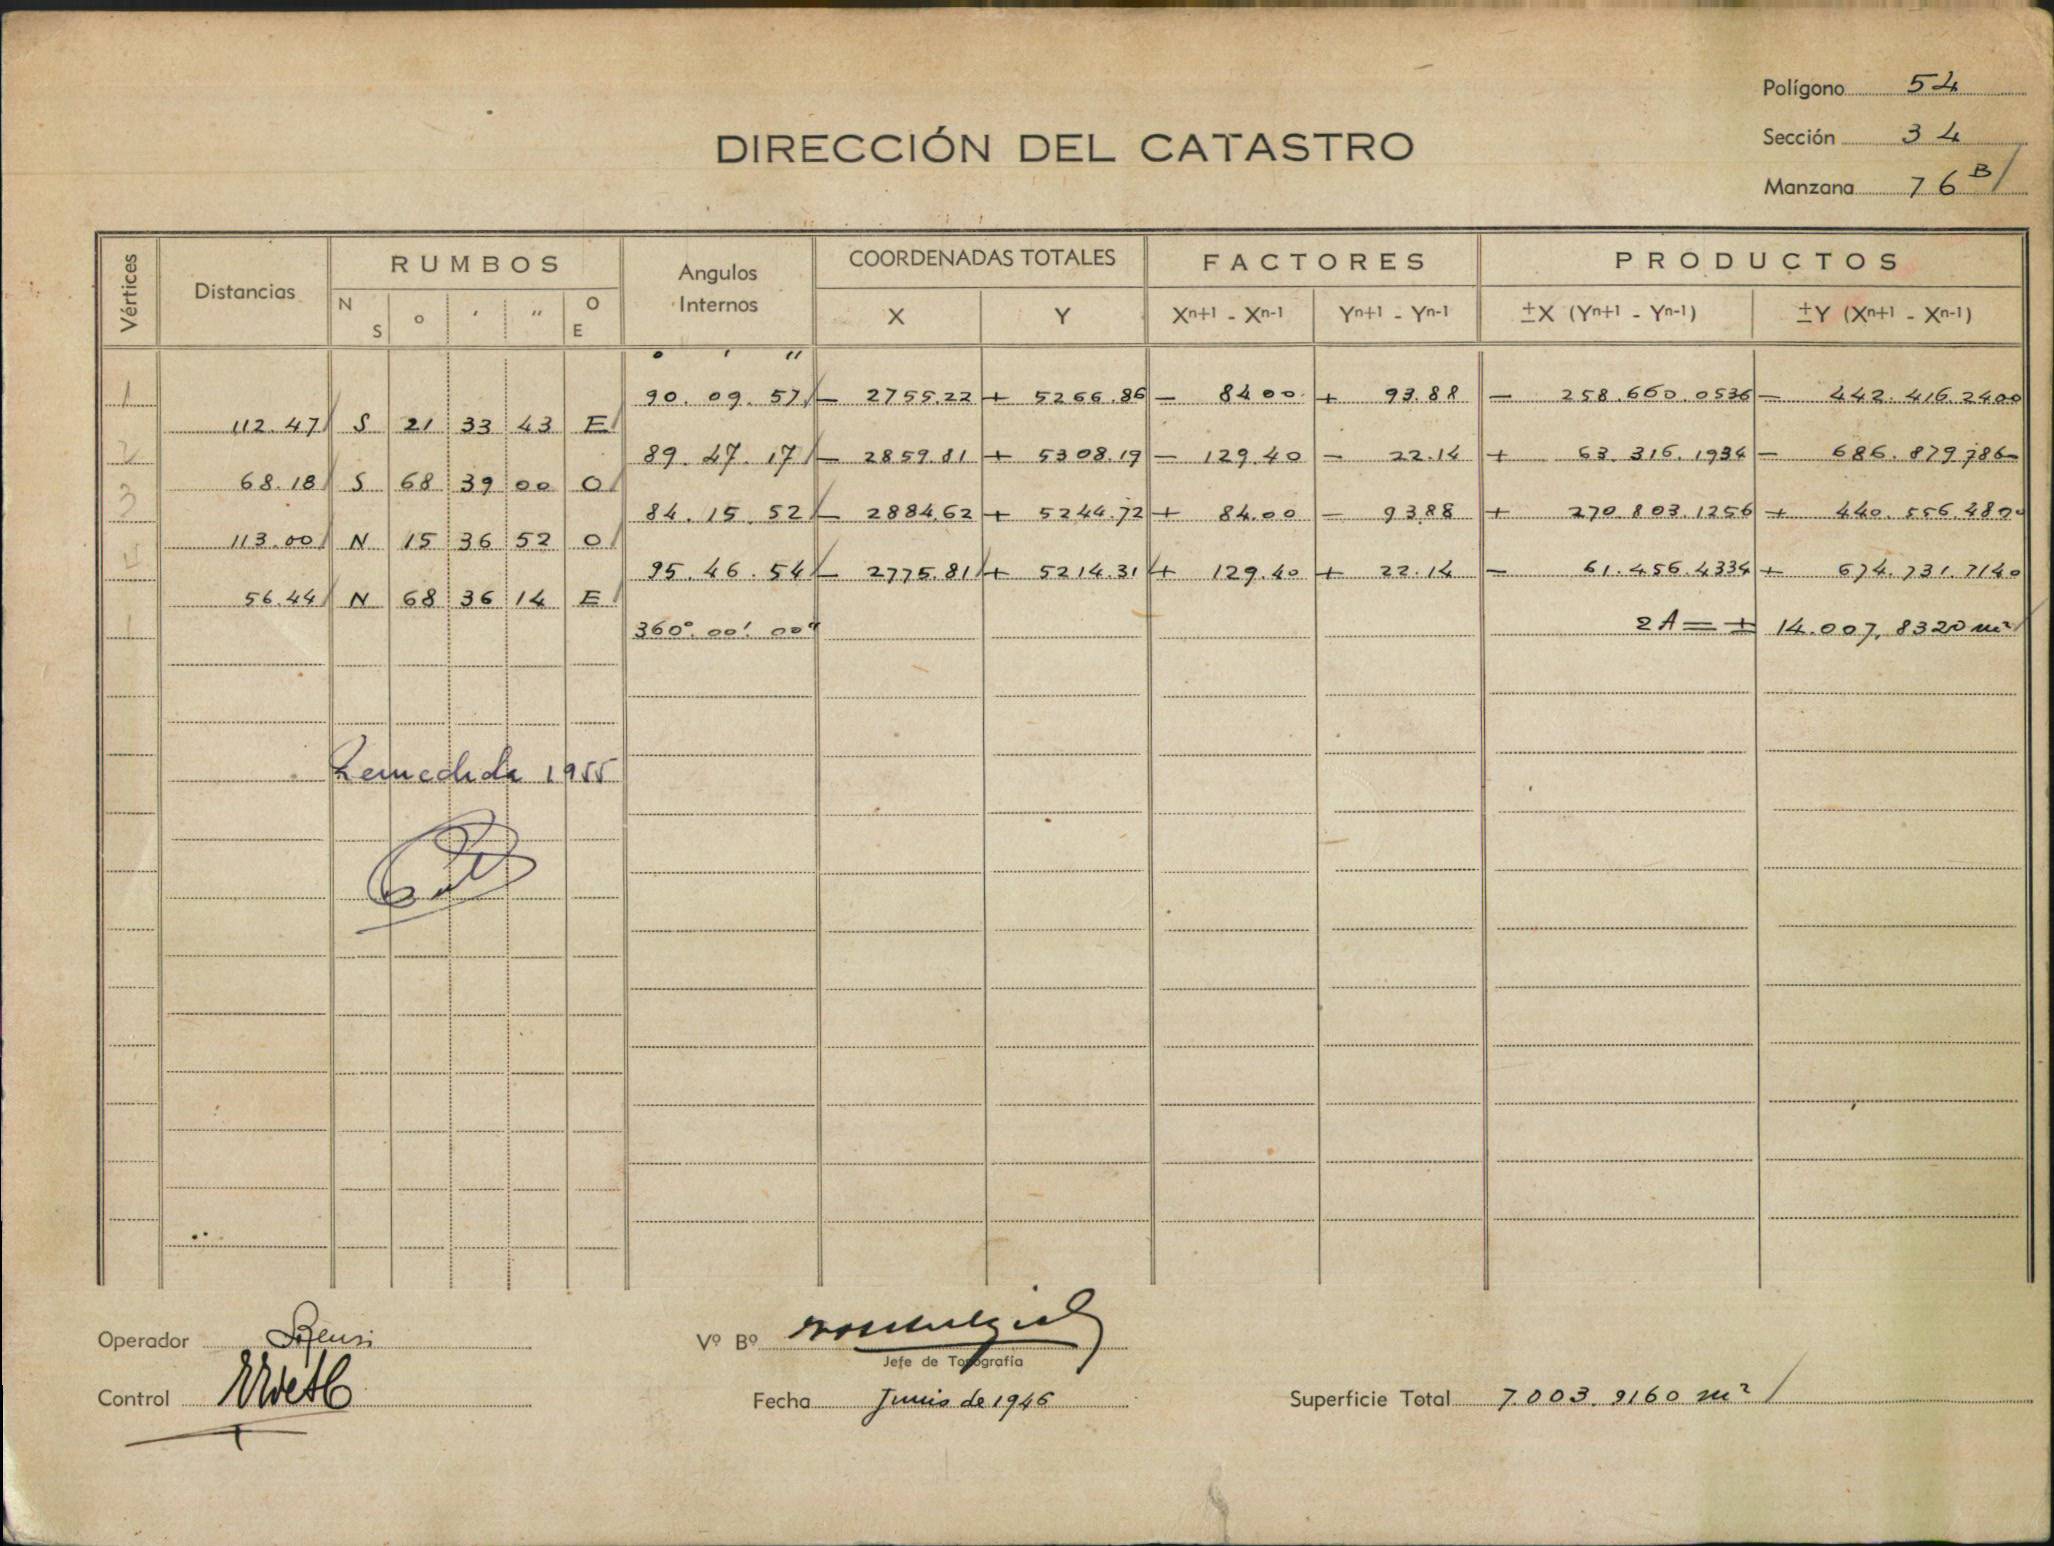 Polígono 54
DIRECCIÓN DEL CATASTRO
Sección 34
Manzana 76 B/
Vértices Distancias RUMBOS Angulos Internos COORDENADAS TOTALES FACTORES PRODUCTOS
N S o ' " O E X Y Xn+1 - Xn-1 Yn+1 - Yn-1 ±X (Yn+1 - Yn-1) ±Y (Xn+1 - Xn-1)
o ' "
1 90. 09. 57/ - 2755.22 + 5266.86 - 84.00 + 93.88 - 258.660.0536 - 442.416.2400
112.47/ S 21 33 43 E/
2 89. 47. 17/ - 2859.81 + 5308.19 - 129.40 - 22.14 + 63.316.1934 - 686.879.786-
68.18/ S 68 39 00 O/
3 84. 15. 52/ - 2884.62 + 5244.72 + 84.00 - 93.88 + 270.803.1256 + 440.556.4800
113.00/ N 15 36 52 O/
4 95. 46. 54/ - 2775.81/ + 5214.31 + 129.40 + 22.14 - 61.456.4334 + 674.731.7140
56.44/ N 68 36 14 E/
1 360°. 00'. 00" 2A = ± 14.007,8320 m²/
Remedida 1955
Operador
Vº Bº
Jefe de Topografía
Control
Fecha Junio de 1946
Superficie Total 7.003.9160 m² /